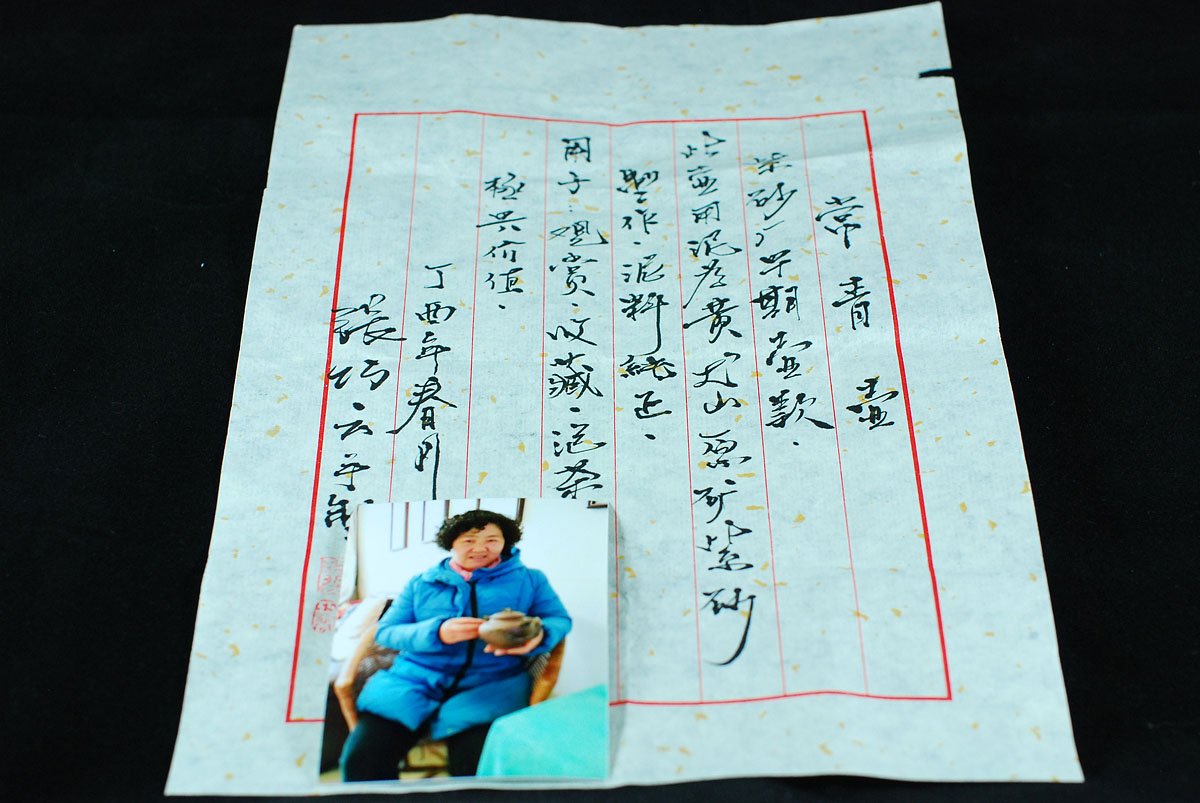 常青壶
紫砂厂早期壶款、
此壶用泥为黄龙山原矿紫砂
製作、泥料纯正、
用于：观赏、收藏、泡茶
极具价值、
丁酉年春月
張巧云手制